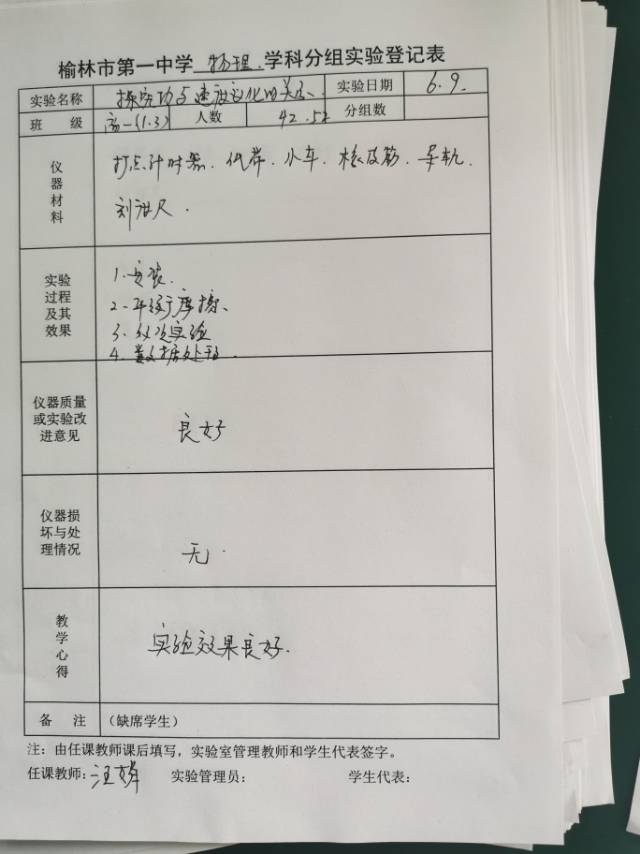 榆林市第一中学 物理 学科分组实验登记表
实验名称 探究功与速度变化的关系 实验日期 6.9.
班 级 高一(1.3) 人数 42.52 分组数
仪器材料 打点计时器. 小车. 橡皮筋. 导轨.
刻度尺.
实验过程及其效果 1.安装.
2.平衡摩擦.
3.实验
4.数据处理.
仪器质量或实验改进意见 良好
仪器损坏与处理情况 无.
教学心得 实验效果良好.
备 注 （缺席学生）
注：由任课教师课后填写，实验室管理教师和学生代表签字。
任课教师：汪 实验管理员： 学生代表：